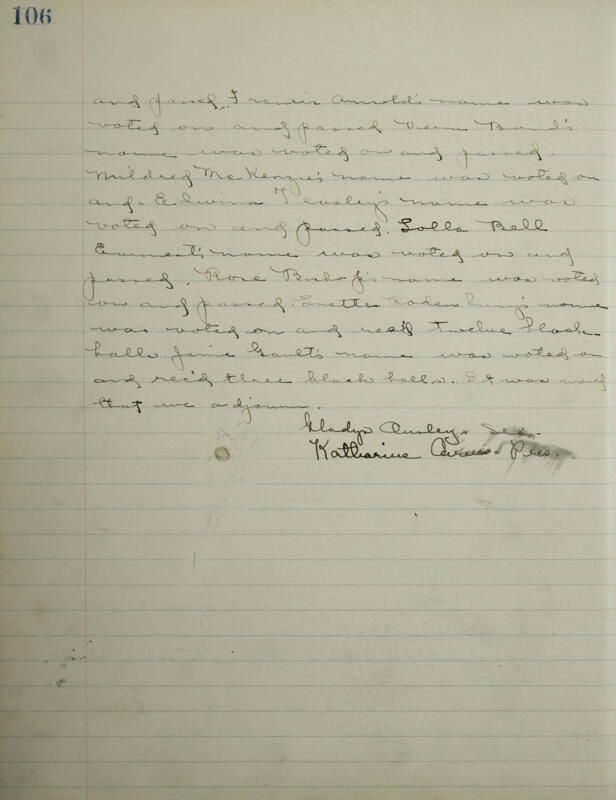 106
and passed. Francis Arnold's name was
voted on and passed Vera Bond's
name was voted on and passed.
Mildred McKenzie's name was voted on
and. Edwina Teasley's name was
voted on and passed. Lolla Bell
Earnest's name was voted on and
passed. Rose name was voted
on and passed. name
was voted on and rec'd twelve black
balls. Janie Gault's name was voted on
and rec'd three black balls. It was
that we adjourn.
Gladys Sec.
Katharine Pres.